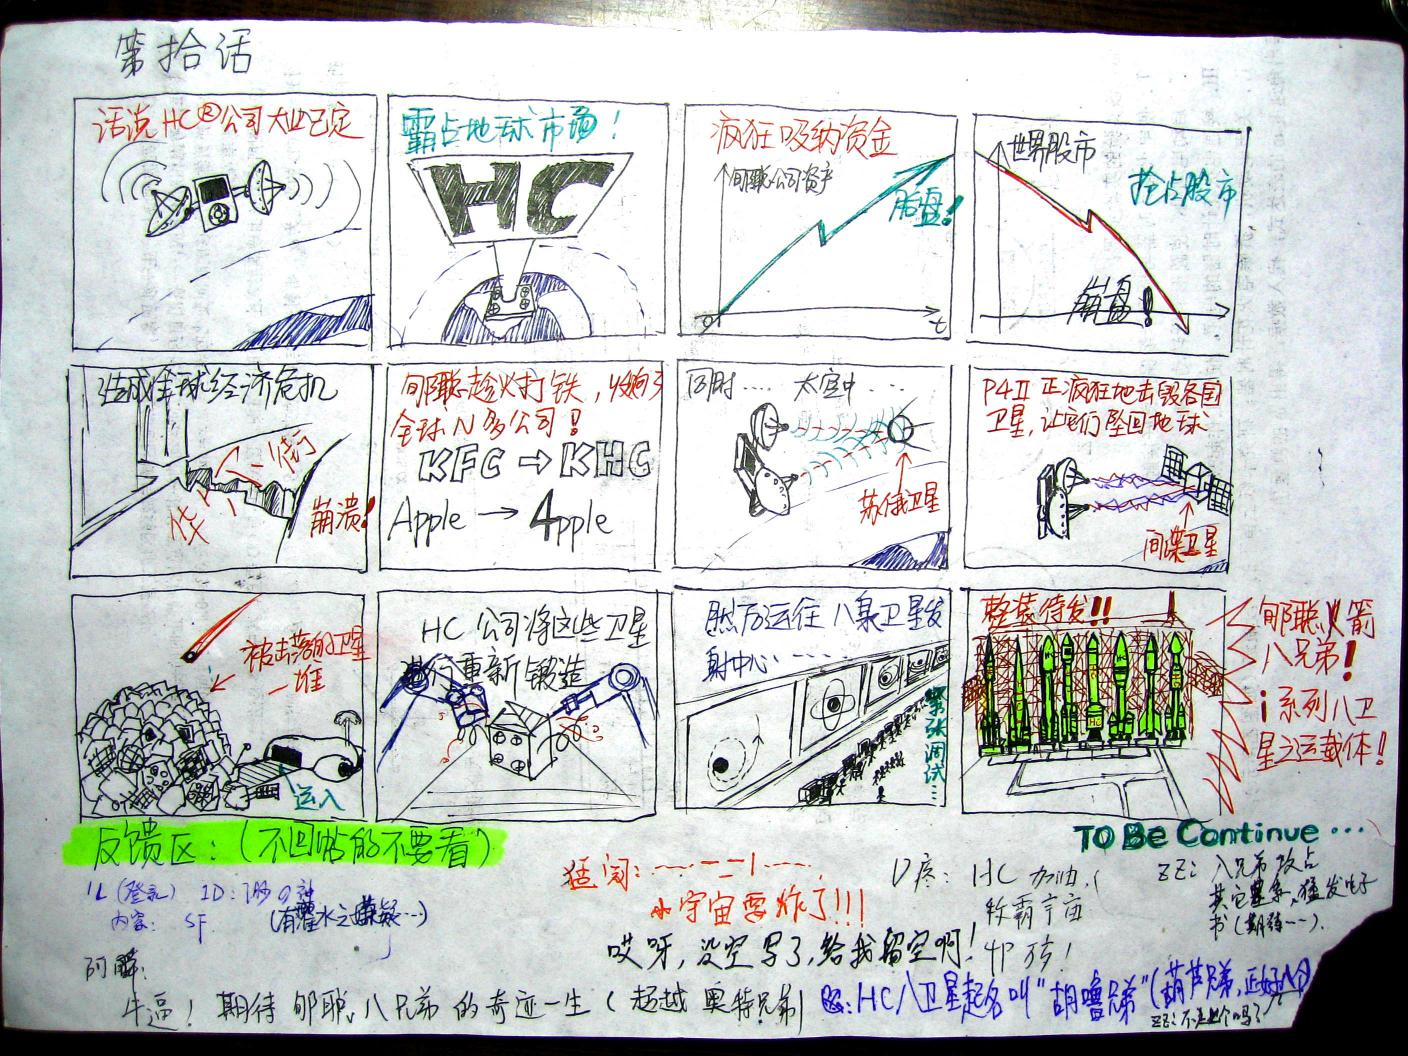 第拾话
话说 HC®公司大业已定
霸占地球市场！
HC
疯狂吸纳资金
郇聪公司资产
胀盘！
0
t
世界股市
抢占股市
崩盘！
造成全球经济危机
华尔街
崩溃！
郇聪趁火打铁，收购了
全球N多公司！
KFC → KHC
Apple → 4pple
同时…… 太空中……
苏俄卫星
P4II 正疯狂地击毁各国
卫星，让它们坠回地球
间谍卫星
被击落的卫星
一堆
运入
HC 公司将这些卫星
进行重新锻造
然后运往 八泉卫星发
射中心……
紧张调试…
整装待发!!
郇聪火箭
八兄弟！
i系列八卫
星之运载体！
TO BE Continue…
反馈区：（不回帖的不要看）
1L（登录） ID：
内容： SF （有灌水之嫌疑…）
小宇宙要炸了!!!
哎呀，没空写了，给我留空啊！
HC 加油！
称霸宇宙
ZZ： 八兄弟攻占
其它星系，猛发电子
书（期待……）.
牛逼！期待郇聪八兄弟的奇迹一生（超越奥特兄弟）
：HC八卫星起名叫“胡噜兄弟”（葫芦兄弟，正好八个
ZZ：不是七个吗？